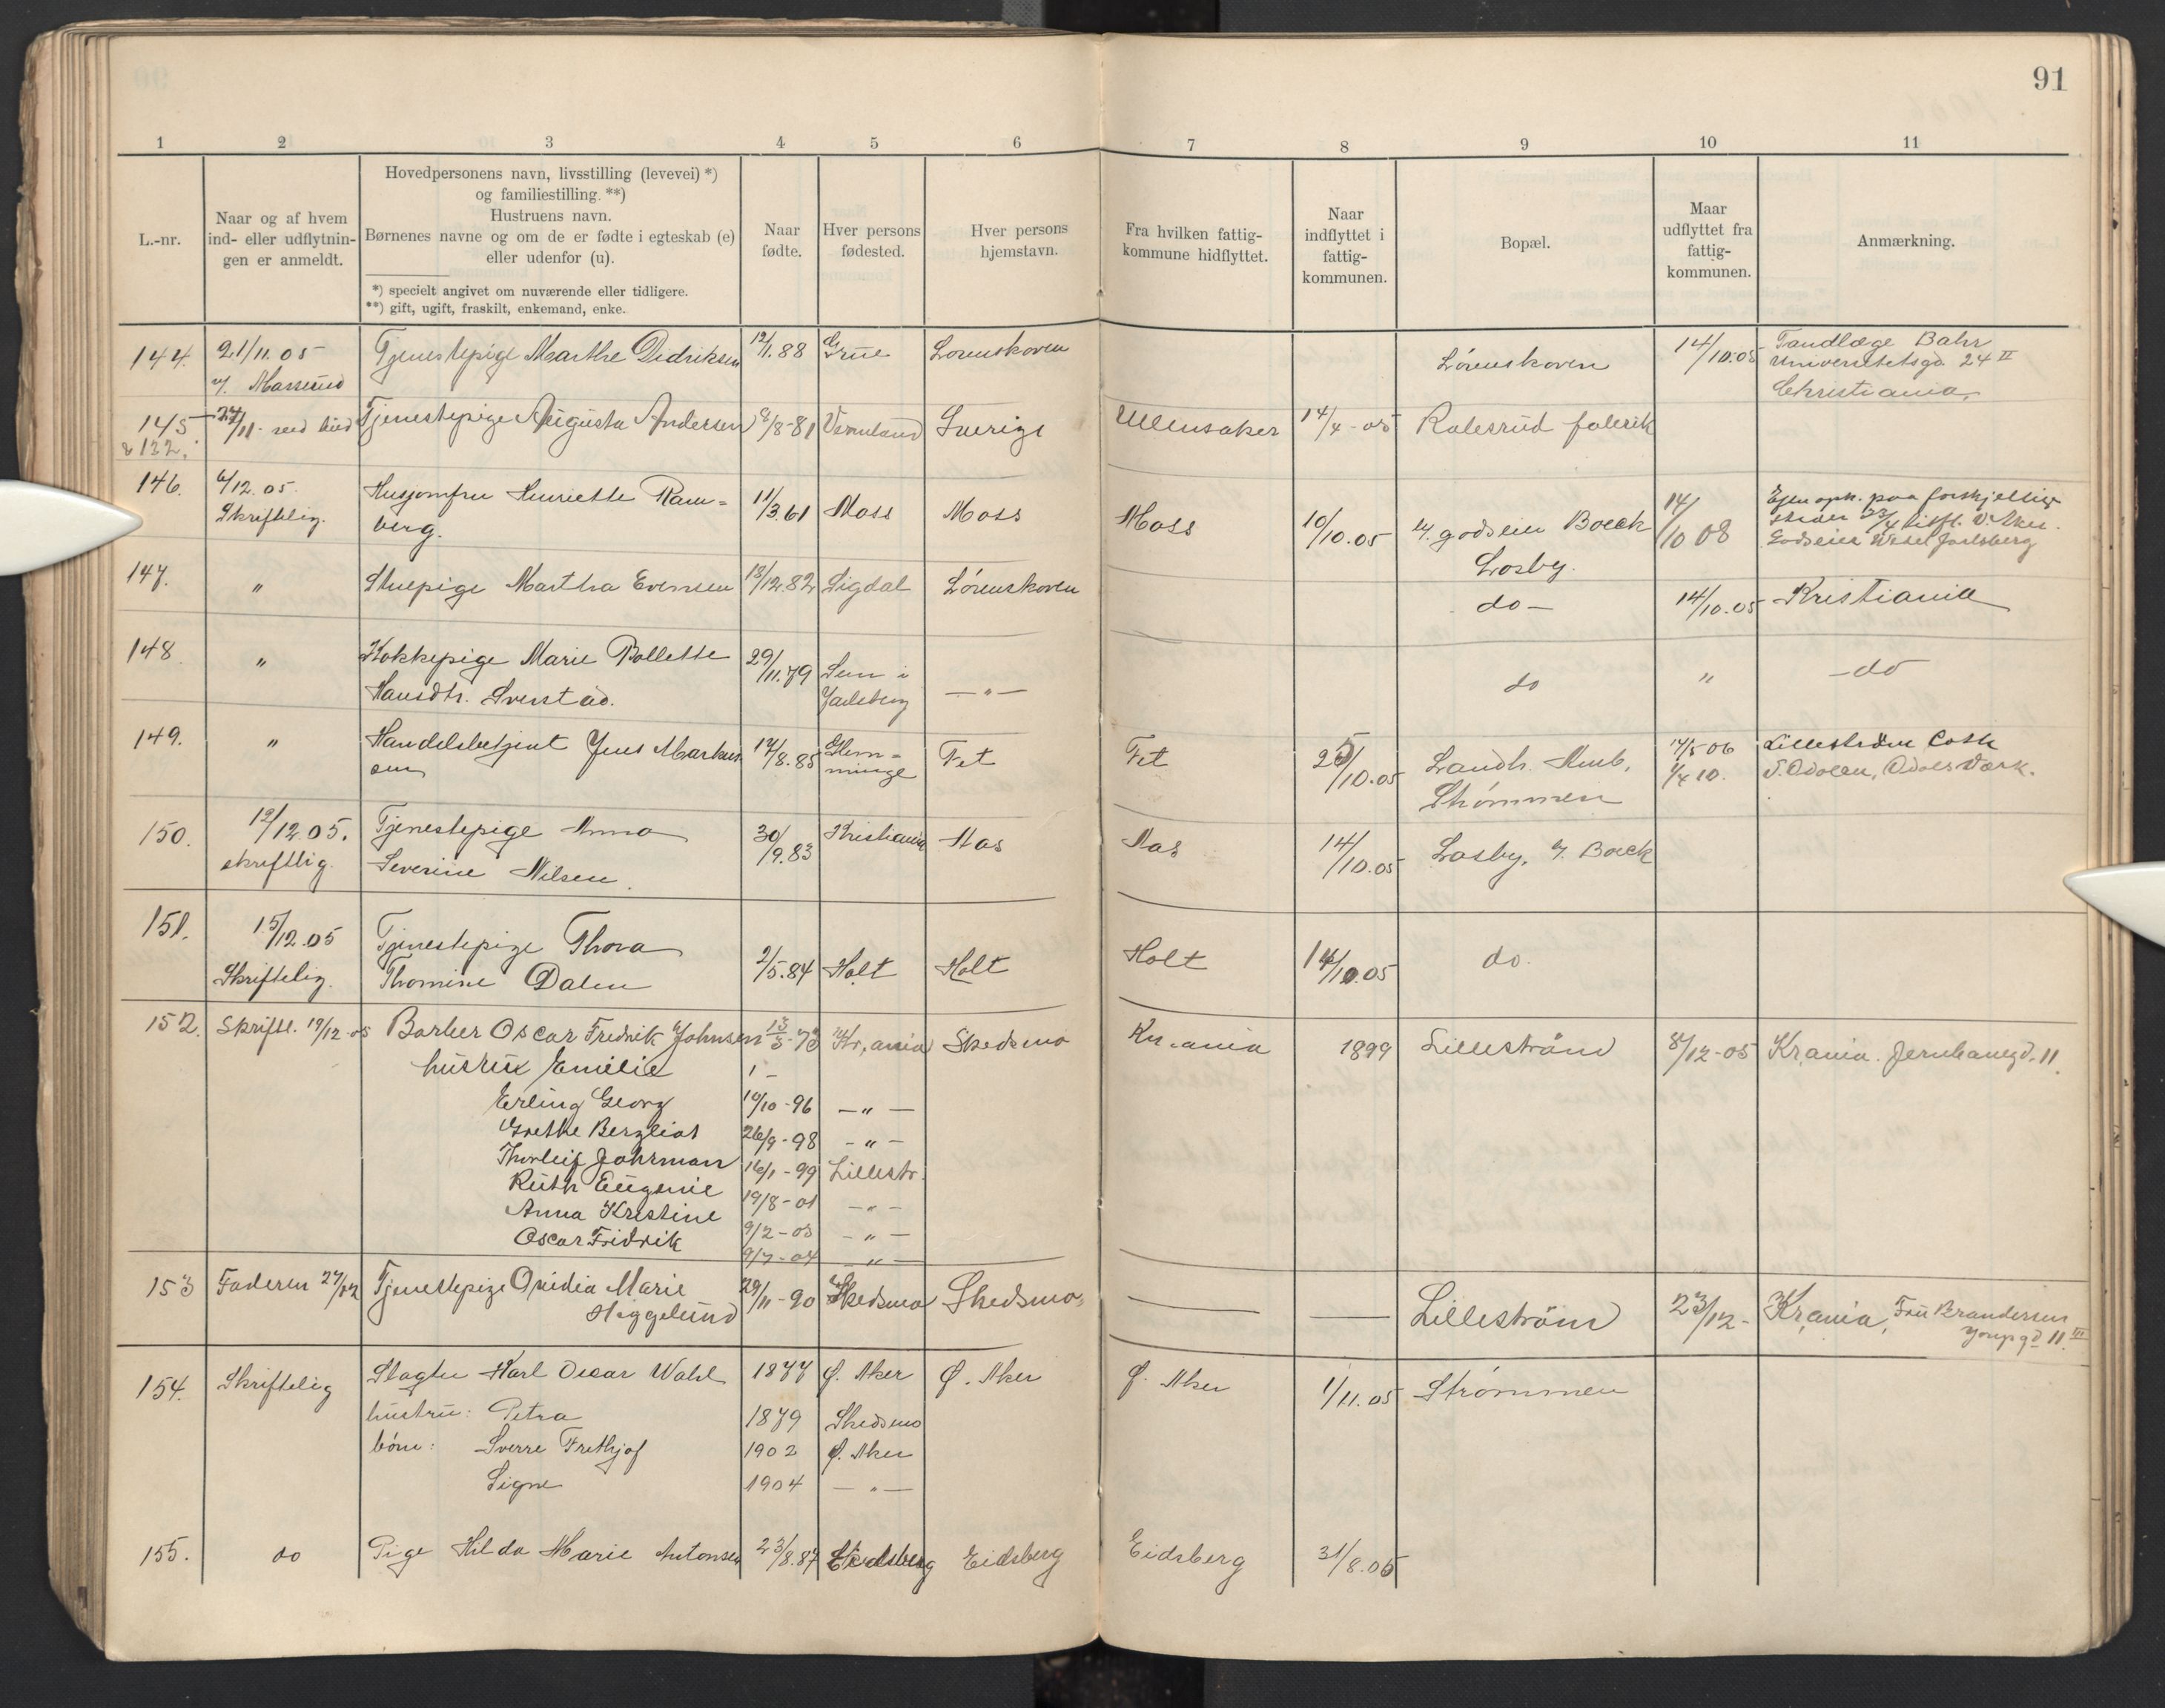 91
1 2 3 4 5 6 7 8 9 10 11
L.-nr.
Naar og af hvem
ind- eller udflytnin-
gen er anmeldt.
Hovedpersonens navn, livsstilling (levevei) *)
og familiestilling. **)
Hustruens navn.
Børnenes navne og om de er fødte i egteskab (e)
eller udenfor (u).
*) specielt angivet om nuværende eller tidligere.
**) gift, ugift, fraskilt, enkemand, enke.
Naar
fødte.
Hver persons
fødested.
Hver persons
hjemstavn.
Fra hvilken fattig-
kommune hidflyttet.
Naar
indflyttet i
fattig-
kommunen.
Bopæl.
Maar
udflyttet fra
fattig-
kommunen.
Anmærkning.
144. 21/11.05 Tjenestepige Marthe Didriksen 12/1.88 Grue Lørenskoven Lørenskoven 14/10.05 Tandlæge Bahr
Universitetsgd. 24 II
Christiania.
145 27/11 Tjenestepige Augusta Andersen 9/8-81 Vermland Sverige Ullensaker 14/4-05 Ralesrud fabrik
& 132.
146. 6/12.05. Husjomfru Henriette Ram= 11/3.61 Moss Moss Moss 10/10.05 godseier Boeck 14/10 08
Skriftelig. berg. Losby.
147. " Stuepige Martha Evensen 18/12.82 Sigdal Lørenskoven do- 14/10.05 Kristiania
148 " Kokkepige Marie Bollette 29/11.79 Sem i -"- do " -do
Hansdtr. Sverstad. Jarlsberg
149. " Handelsbetjent Jens Markus 17/8.85 Glem= Fet Fet 25/10.05 Landh. 14/5 06 Lilleström
sen minge Strømmen 1/4 10. Odals Værk.
150. 12/12 05. Tjenestepige Anna 30/9.83 Kristiania Aas Aas 14/10.05 Losby, Boeck
skriftlig. Severine Nilsen.
151. 15/12.05 Tjenestepige Thora 2/5.84 Holt Holt Holt 14/10.05 do.
Skriftelig. Thomine Dalen
152. Skriftl. 19/12-05 Barber Oscar Fredrik Johnsen 13/3-73 Kr,ania Skedsmo Kr.ania 1899 Lilleström 8/12-05 Kr.ania. Jernbanegd. 11.
hustru Emilie
Erling Georg 10/10-96 -"-
Grethe Bergliot 26/9-98 -"-
Thorleif Johrman 16/1-99 Lillestr.
Ruth Eugenie 19/8-01 -"-
Anna Kristine 9/2-03 -"-
Oscar Fridrik 9/7-04 -"-
153 Faderen 27/12 Tjenestepige Ovidia Marie 29/11-90 Skedsmo Skedsmo Lilleström 23/12- Kr,ania, Fru Brandersen
Haggelund 11 III
154. Skriftelig Slagter Karl Oscar Wahl 1877 Ø. Aker Ø. Aker Ø. Aker 1/11.05 Strømmen
hustru: Petra 1879 Skedsmo
børn: Sverre Frethjof 1902 Ø. Aker
Signe 1904 -"-
155. do Pige Hilda Marie Antonsen 23/8.87 Eidsberg Eidsberg Eidsberg 31/8.05